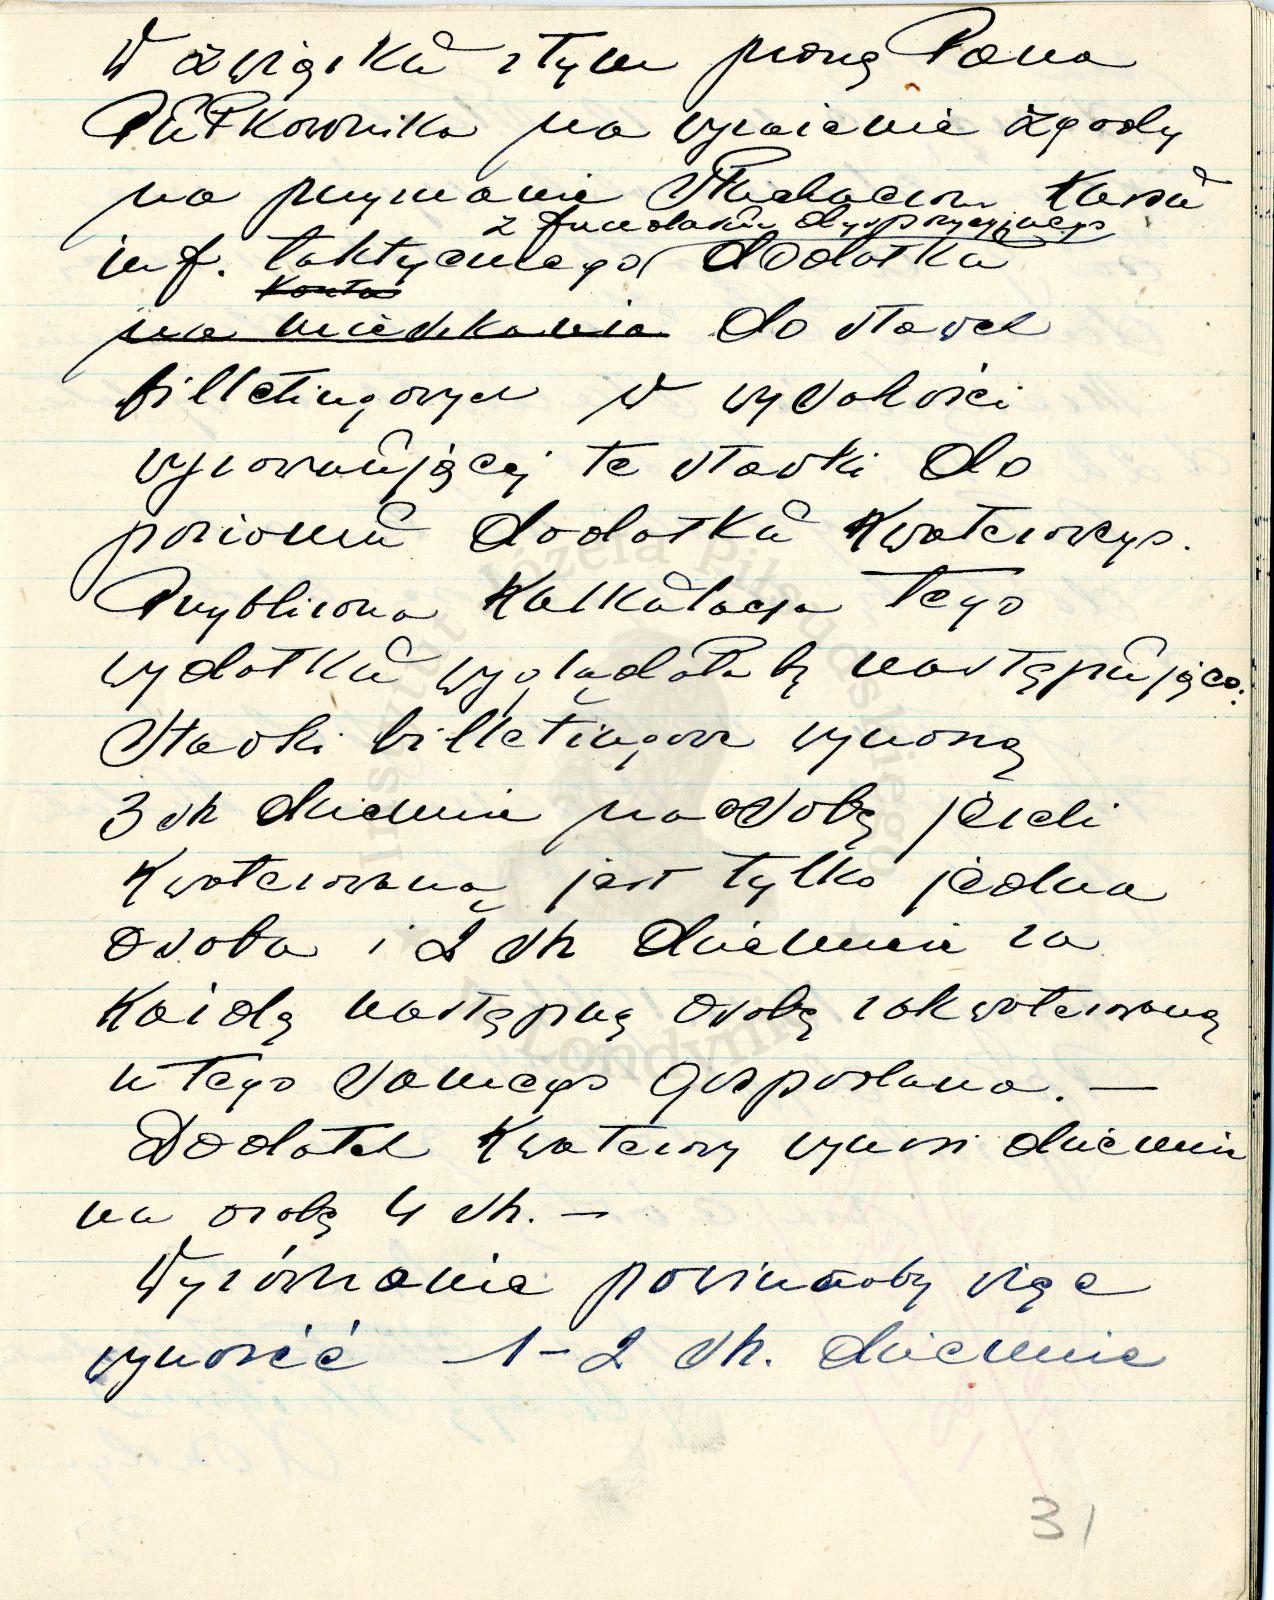 W związku z tym proszę Pana
Pułkownika na wyrażenie zgody
na przyznanie Słuchaczom Kursu
z funduszu dyspozycyjnego
inf. taktycznego dodatku
Konto
na mieszkania do stawek
billetingowych w wysokości
wyrównującej te stawki do
poziomu dodatku kwaterowego.
Przybliżona kalkulacja tego
wydatku wyglądała by następująco:
Stawki billetingowe wynoszą
3 sh dziennie na osobę jeżeli
kwaterowaną jest tylko jedna
osoba i 2 sh dziennie za
każdą następną osobę zakwaterowaną
u tego samego gospodarza. —
Dodatek kwaterowy wynosi dziennie
na osobę 4 sh. —
Wyrównanie powinnoby więc
wynosić 1-2 sh. dziennie
31
Instytut Józefa Piłsudskiego
Londyn